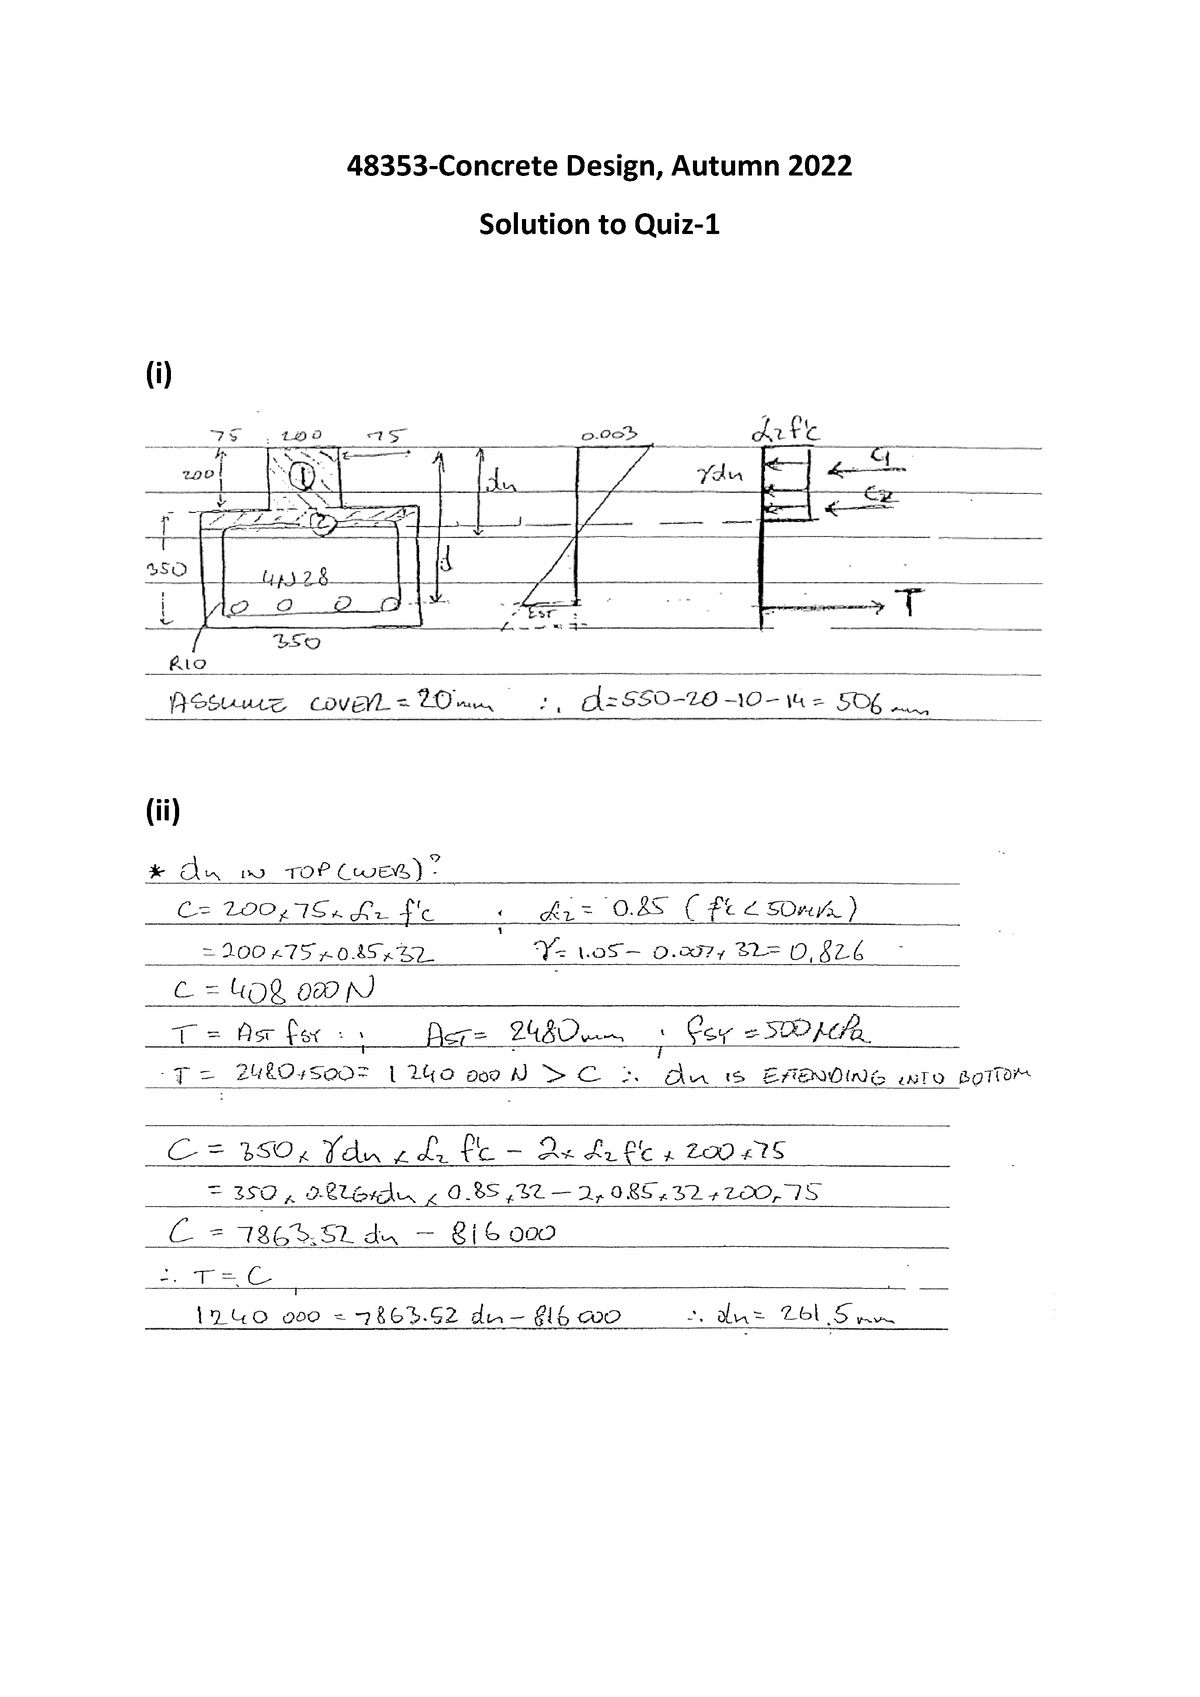 48353-Concrete Design, Autumn 2022
Solution to Quiz-1
(i)
75 200 75 0.003 α₂f'c
200 1 dn γdn C1
2 C2
350 4N28 d
EST T
350
R10
ASSUME COVER = 20mm ∴ d=550-20-10-14= 506 mm
(ii)
* dn IN TOP (WEB)?
C= 200×75×α₂ f'c ; α₂ = 0.85 ( f'c < 50MPa )
= 200×75×0.85×32 γ= 1.05 - 0.007× 32= 0.826
C = 408 000 N
T = AST fSY ; AST = 2480mm ; fSY = 500 MPa
T = 2480×500= 1 240 000 N > C ∴ dn IS EXTENDING INTO BOTTOM
C = 350 × γdn × α₂ f'c - 2× α₂ f'c × 200 × 75
= 350 × 0.826×dn × 0.85 × 32 - 2× 0.85×32×200×75
C = 7863.52 dn - 816 000
∴ T = C
1 240 000 = 7863.52 dn - 816 000 ∴ dn = 261.5 mm